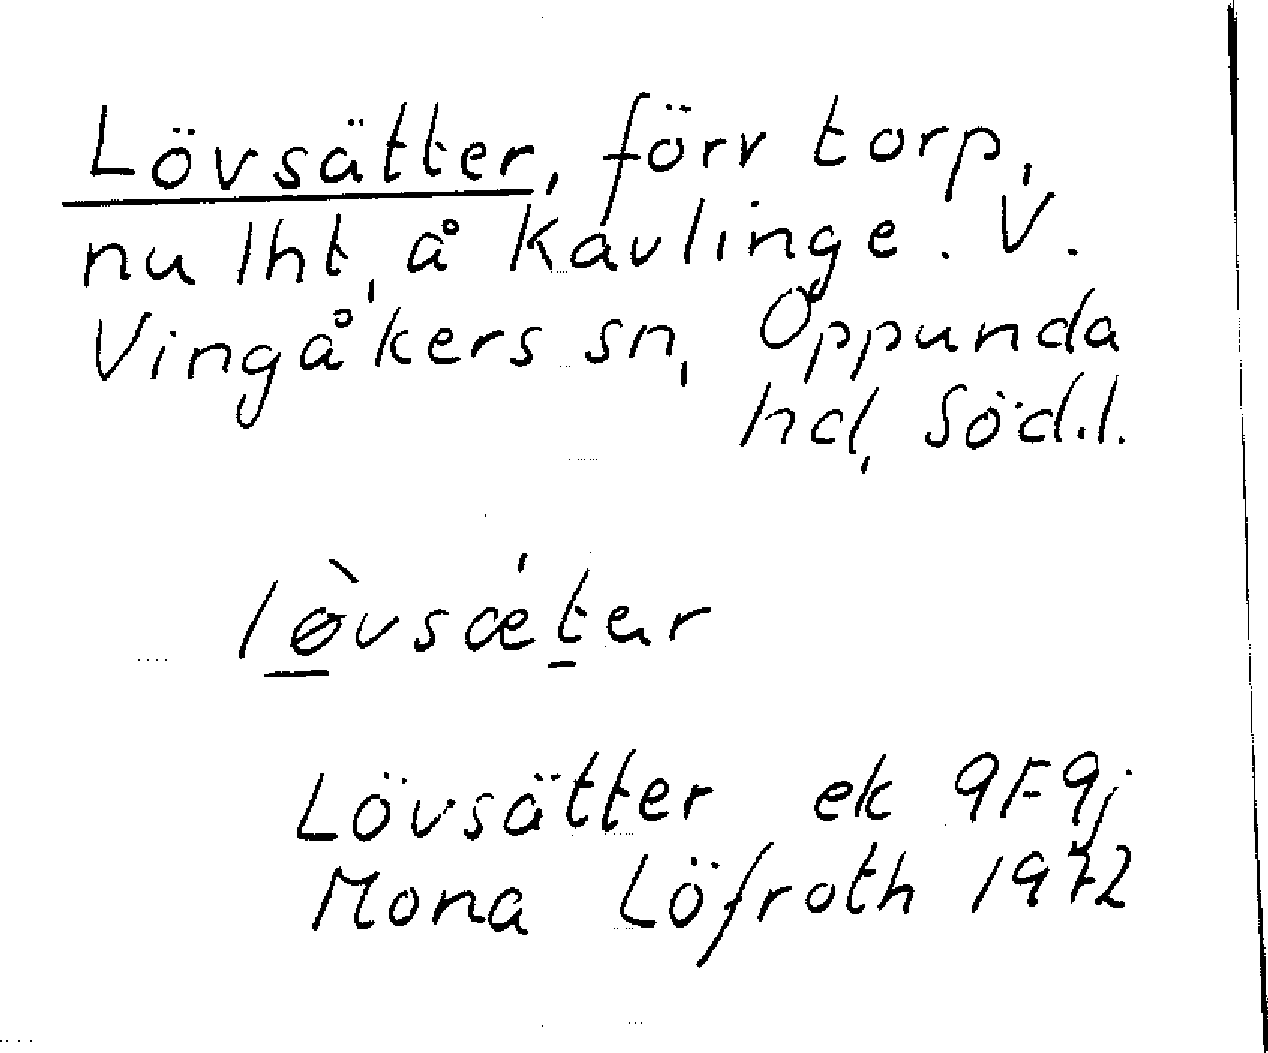 Lövsätter, förv torp,
nu lht, å Kävlinge. V.
Vingåkers sn, Oppunda
hd, Söd.l.
lø̀vsæ̍ter
Lövsätter ek 9F9j
Mona Löfroth 1972